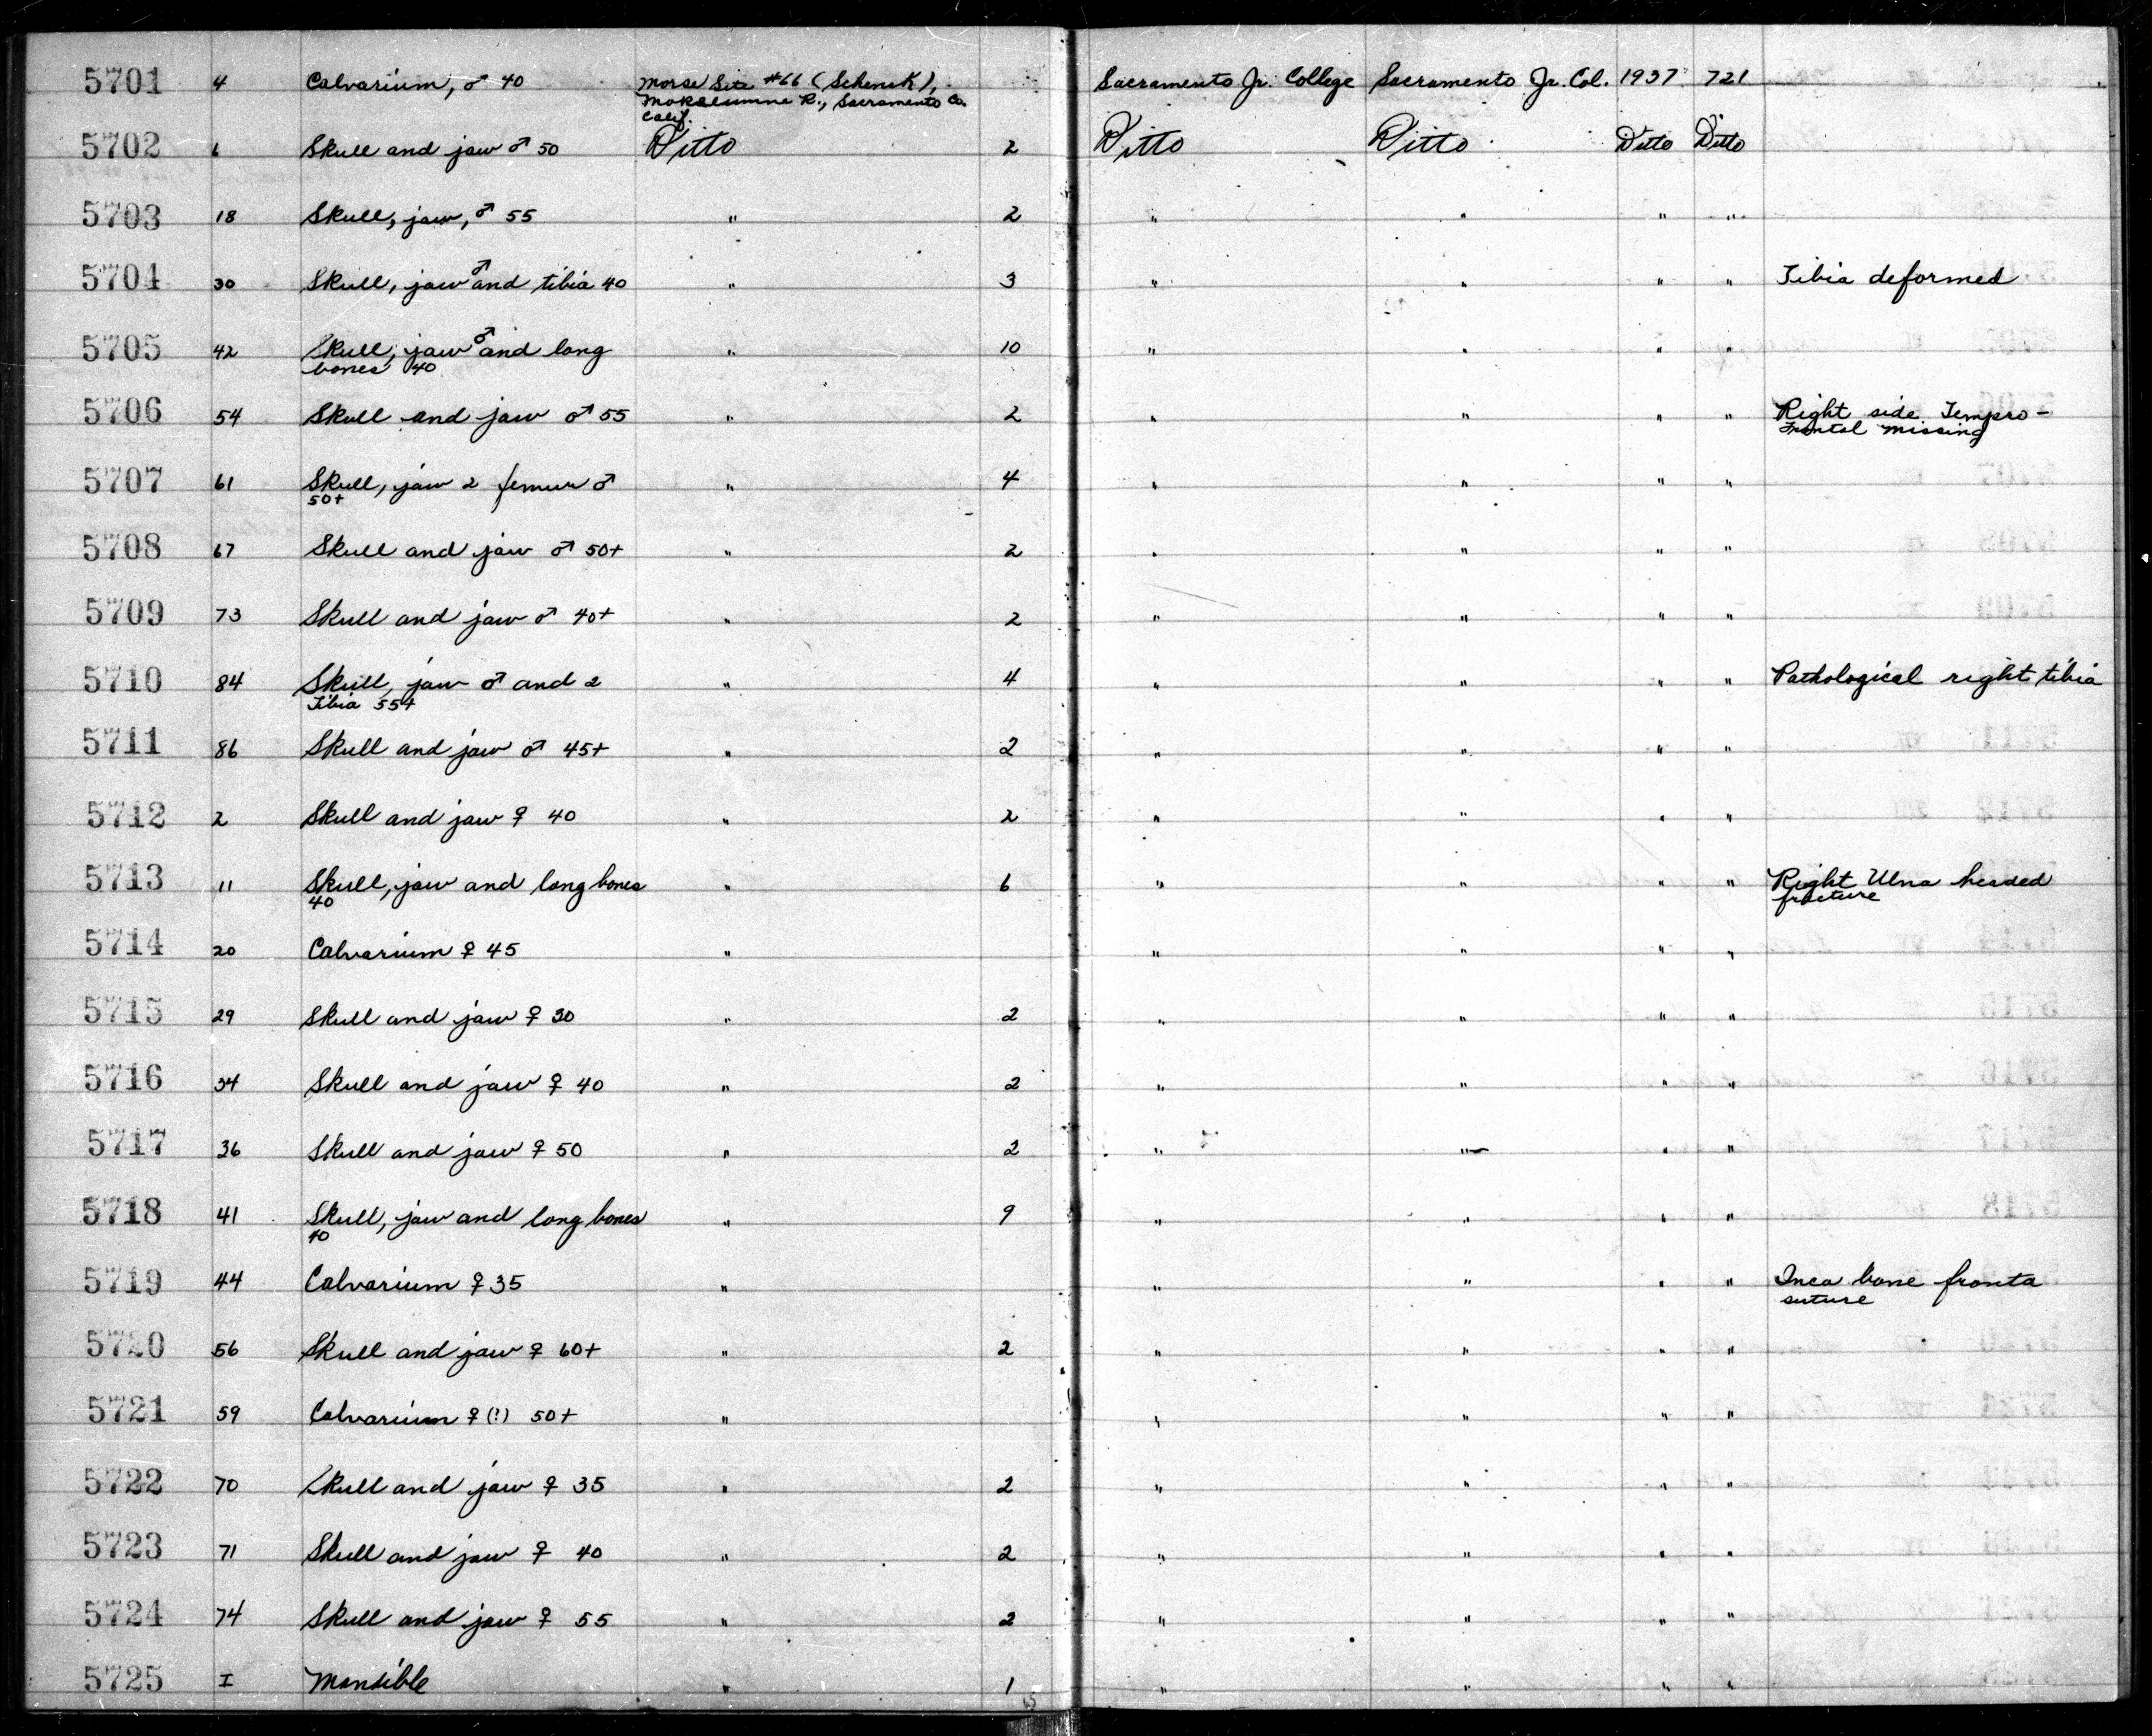 5701 4 Calvarium, ♂ 40 Morse Site #66 (Schenck), Sacramento Jr. College Sacramento Jr. Col. 1937 721
Mokelumne R., Sacramento Co.
Calif.
5702 6 Skull and jaw ♂ 50 Ditto 2 Ditto Ditto Ditto Ditto
5703 18 Skull, jaw, ♂ 55 " 2 " " " "
5704 30 Skull, jaw ♂ and tibia 40 " 3 " " " " Tibia deformed
5705 42 Skull, jaw ♂ and long " 10 " " " "
bones 40
5706 54 Skull and jaw ♂ 55 " 2 " " " " Right side Tempro-
frontal missing
5707 61 Skull, jaw 2 femur ♂ " 4 " " " "
50+
5708 67 Skull and jaw ♂ 50+ " 2 " " " "
5709 73 Skull and jaw ♂ 40+ " 2 " " " "
5710 84 Skull, jaw ♂ and 2 " 4 " " " " Pathological right tibia
Tibia 55+
5711 86 Skull and jaw ♂ 45+ " 2 " " " "
5712 2 Skull and jaw ♀ 40 " 2 " " " "
5713 11 Skull, jaw and long bones " 6 " " " " Right Ulna healed
40 fracture
5714 20 Calvarium ♀ 45 " " " " "
5715 29 Skull and jaw ♀ 30 " 2 " " " "
5716 34 Skull and jaw ♀ 40 " 2 " " " "
5717 36 Skull and jaw ♀ 50 " 2 " " " "
5718 41 Skull, jaw and long bones " 9 " " " "
40
5719 44 Calvarium ♀ 35 " " " " " Inca bone fronta
suture
5720 56 Skull and jaw ♀ 60+ " 2 " " " "
5721 59 Calvarium ♀ (?) 50+ " " " " "
5722 70 Skull and jaw ♀ 35 " 2 " " " "
5723 71 Skull and jaw ♀ 40 " 2 " " " "
5724 74 Skull and jaw ♀ 55 " 2 " " " "
5725 I Mandible " 1 " " " "